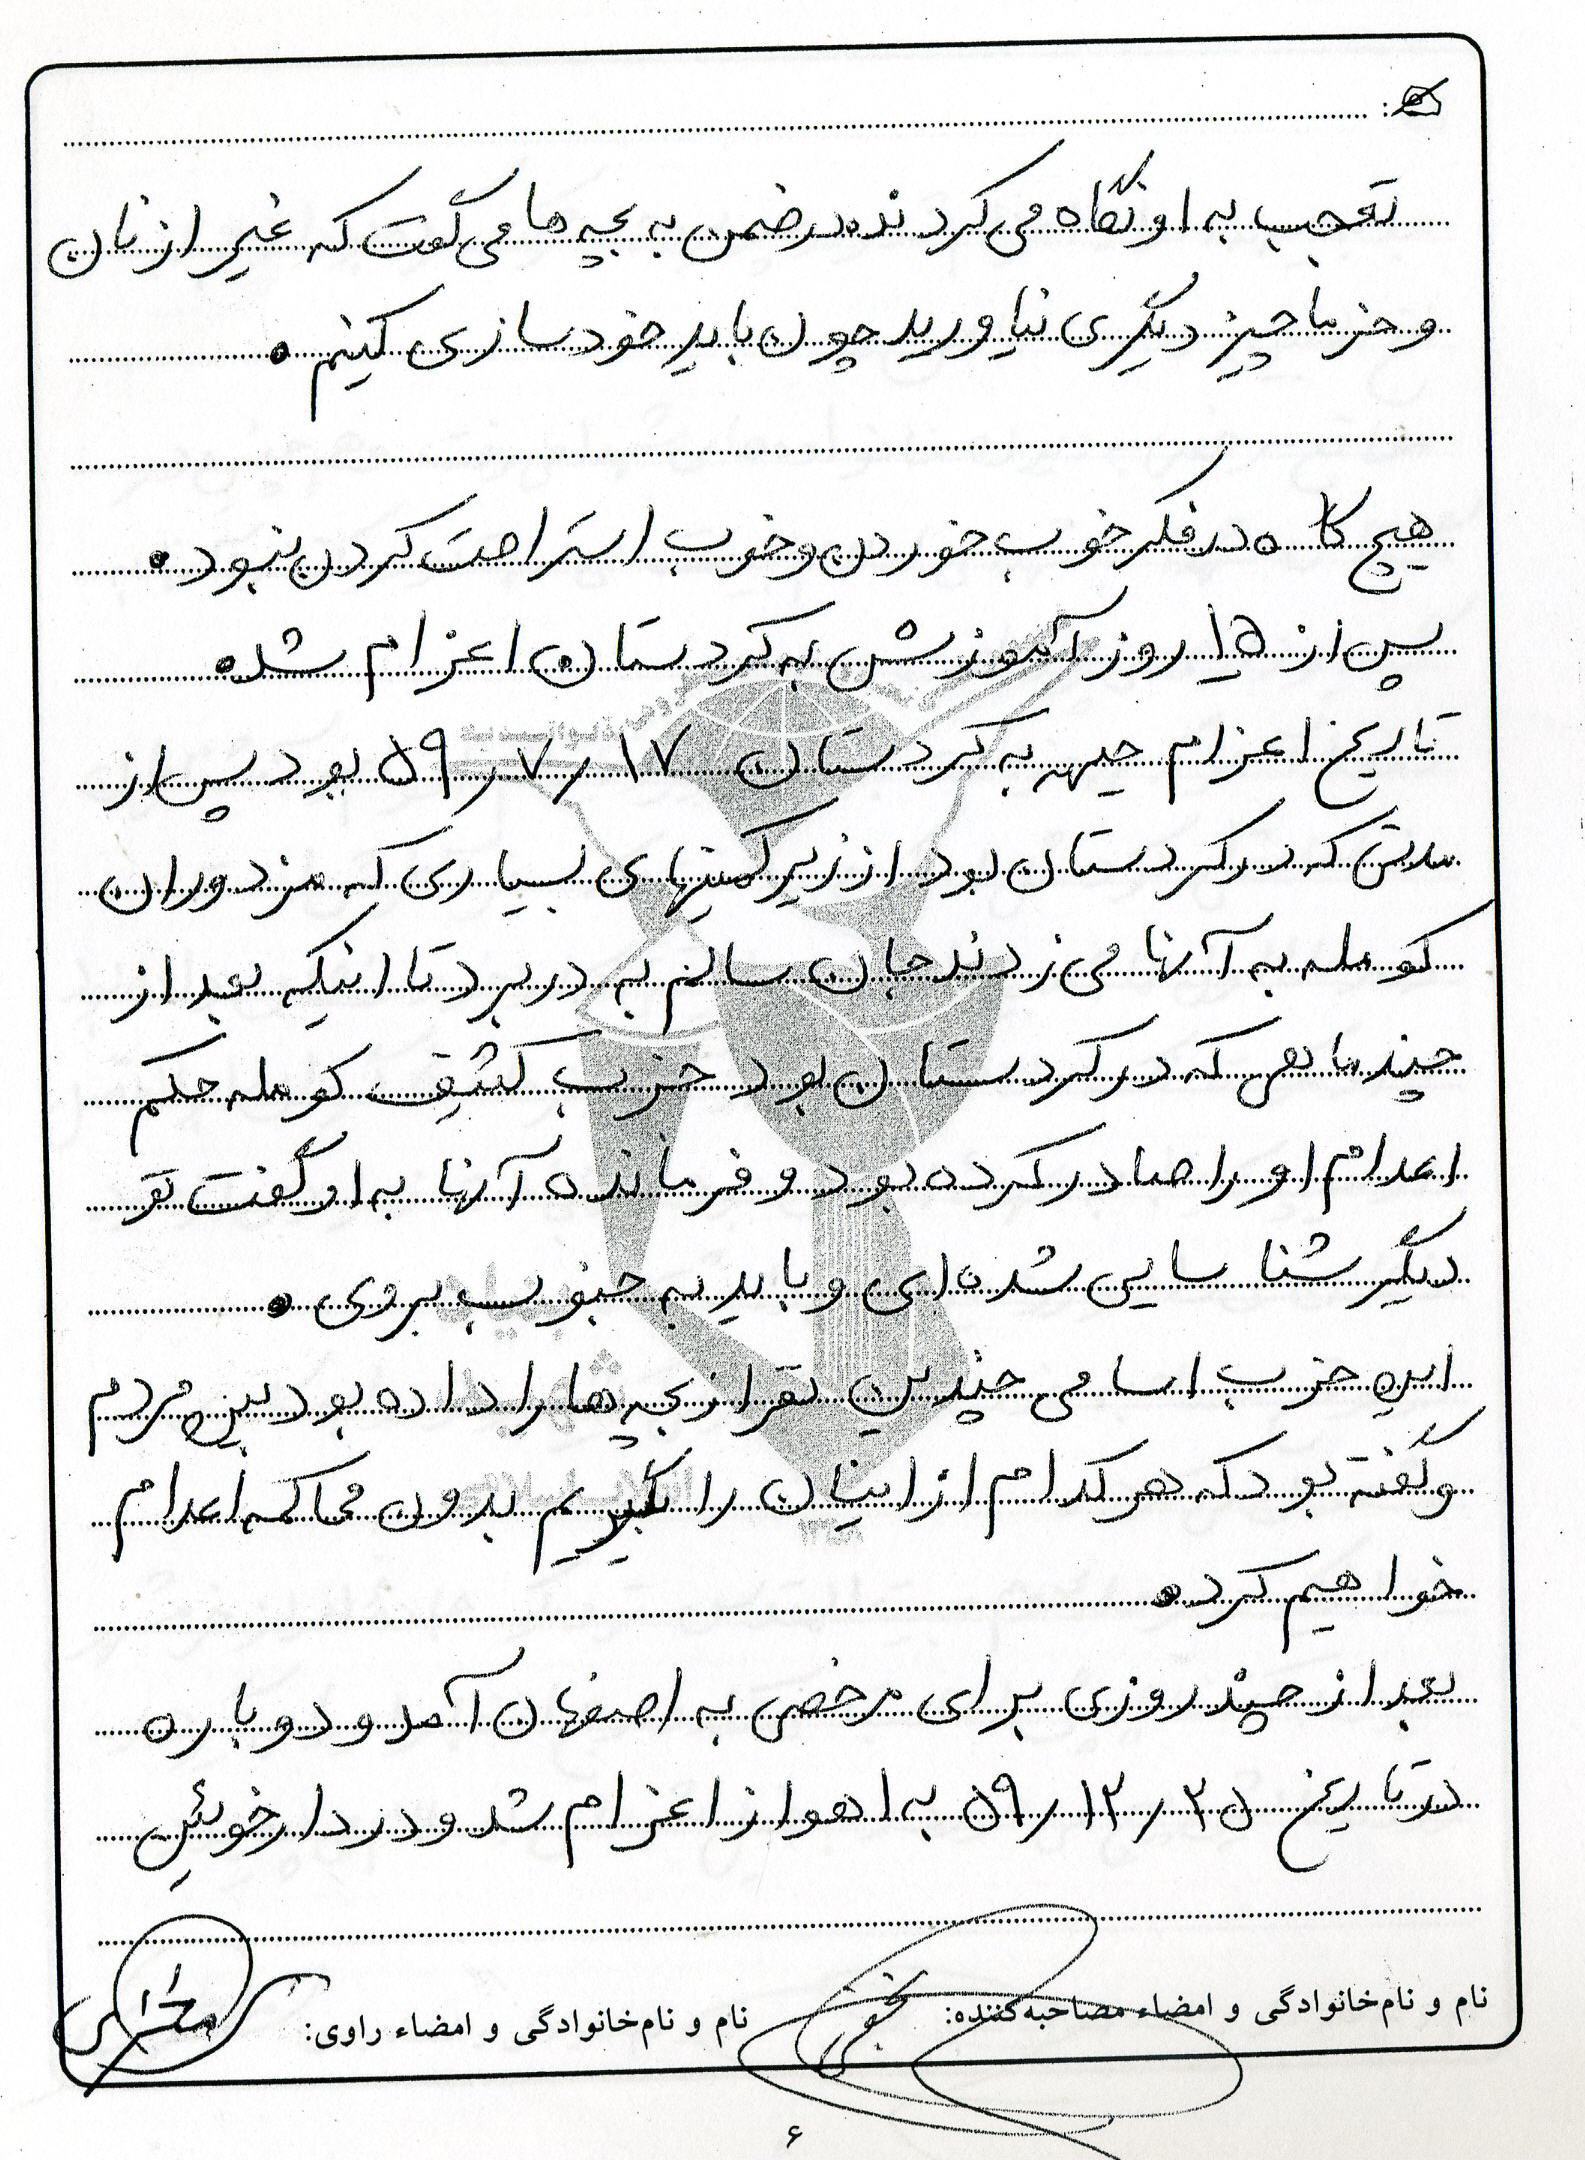 تعجب به او نگاه می کردند در ضمن به بچه ها می گفت که غیر از نان
و خرما چیز دیگری نیاورید چون باید خودسازی کنیم.
هیچ گاه در فکر خوب خوردن و خوب استراحت کردن نبود.
پس از ۱۵ روز آموزش به کردستان اعزام شد.
تاریخ اعزام جبهه به کردستان ۱۷/۷/۵۹ بود پس از
مدتی که در کردستان بود از زیر کمینهای بسیاری که مزدوران
کومله به آنها می زدند جان سالم به در برد تا اینکه بعد از
چند ماهی که در کردستان بود حزب کثیف کومله حکم
اعدام او را صادر کرده بود و فرمانده آنها به او گفت تو
دیگر شناسایی شده ای و باید به جنوب بروی.
این حزب اسامی چندین نفر از بچه ها را داده بود بین مردم
و گفته بود که هر کدام از اینان را بگیریم بدون محاکمه اعدام
خواهیم کرد.
بعد از چند روزی برای مرخصی به اصفهان آمد و دوباره
در تاریخ ۲۵/۱۲/۵۹ به اهواز اعزام شد و در دارخوئین
نام و نام‌خانوادگی و امضاء مصاحبه‌کننده: نام و نام‌خانوادگی و امضاء راوی:
۶